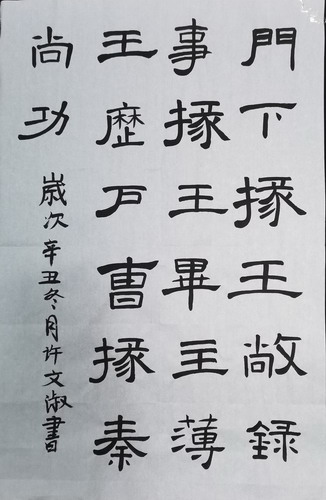 門下掾王敞録
事掾王畢主薄
王歷户曺掾秦
尚功
歲次辛丑冬月许文淑書